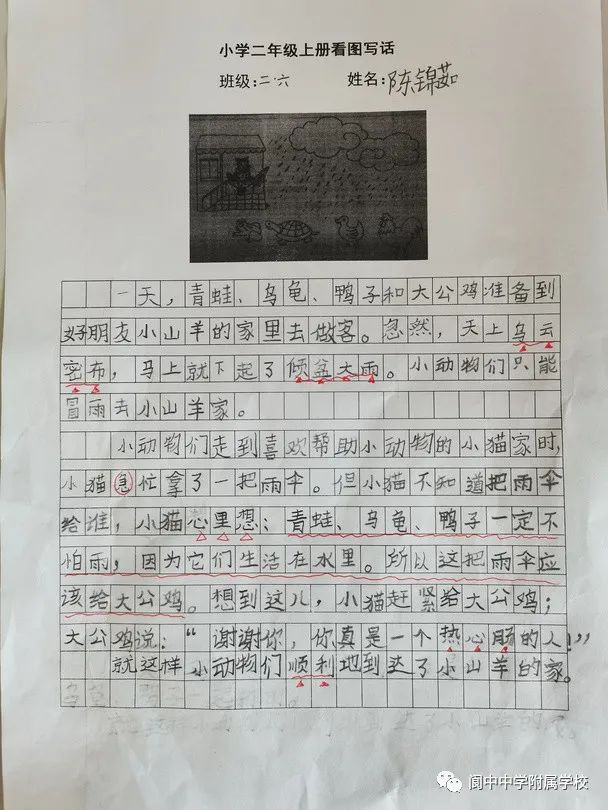 小学二年级上册看图写话
班级:二.六 姓名:陈锦茹
一天，青蛙、乌龟、鸭子和大公鸡准备到
好朋友小山羊的家里去做客。忽然，天上乌云
密布，马上就下起了倾盆大雨。小动物们只能
冒雨去小山羊家。
小动物们走到喜欢帮助小动物的小猫家时，
小猫急忙拿了一把雨伞。但小猫不知道把雨伞
给谁，小猫心里想：青蛙、乌龟、鸭子一定不
怕雨，因为它们生活在水里。所以这把雨伞应
该给大公鸡。想到这儿，小猫赶紧给大公鸡；
大公鸡说：“谢谢你，你真是一个热心肠的人！”
就这样小动物们顺利地到达了小山羊的家。
阆中中学附属学校